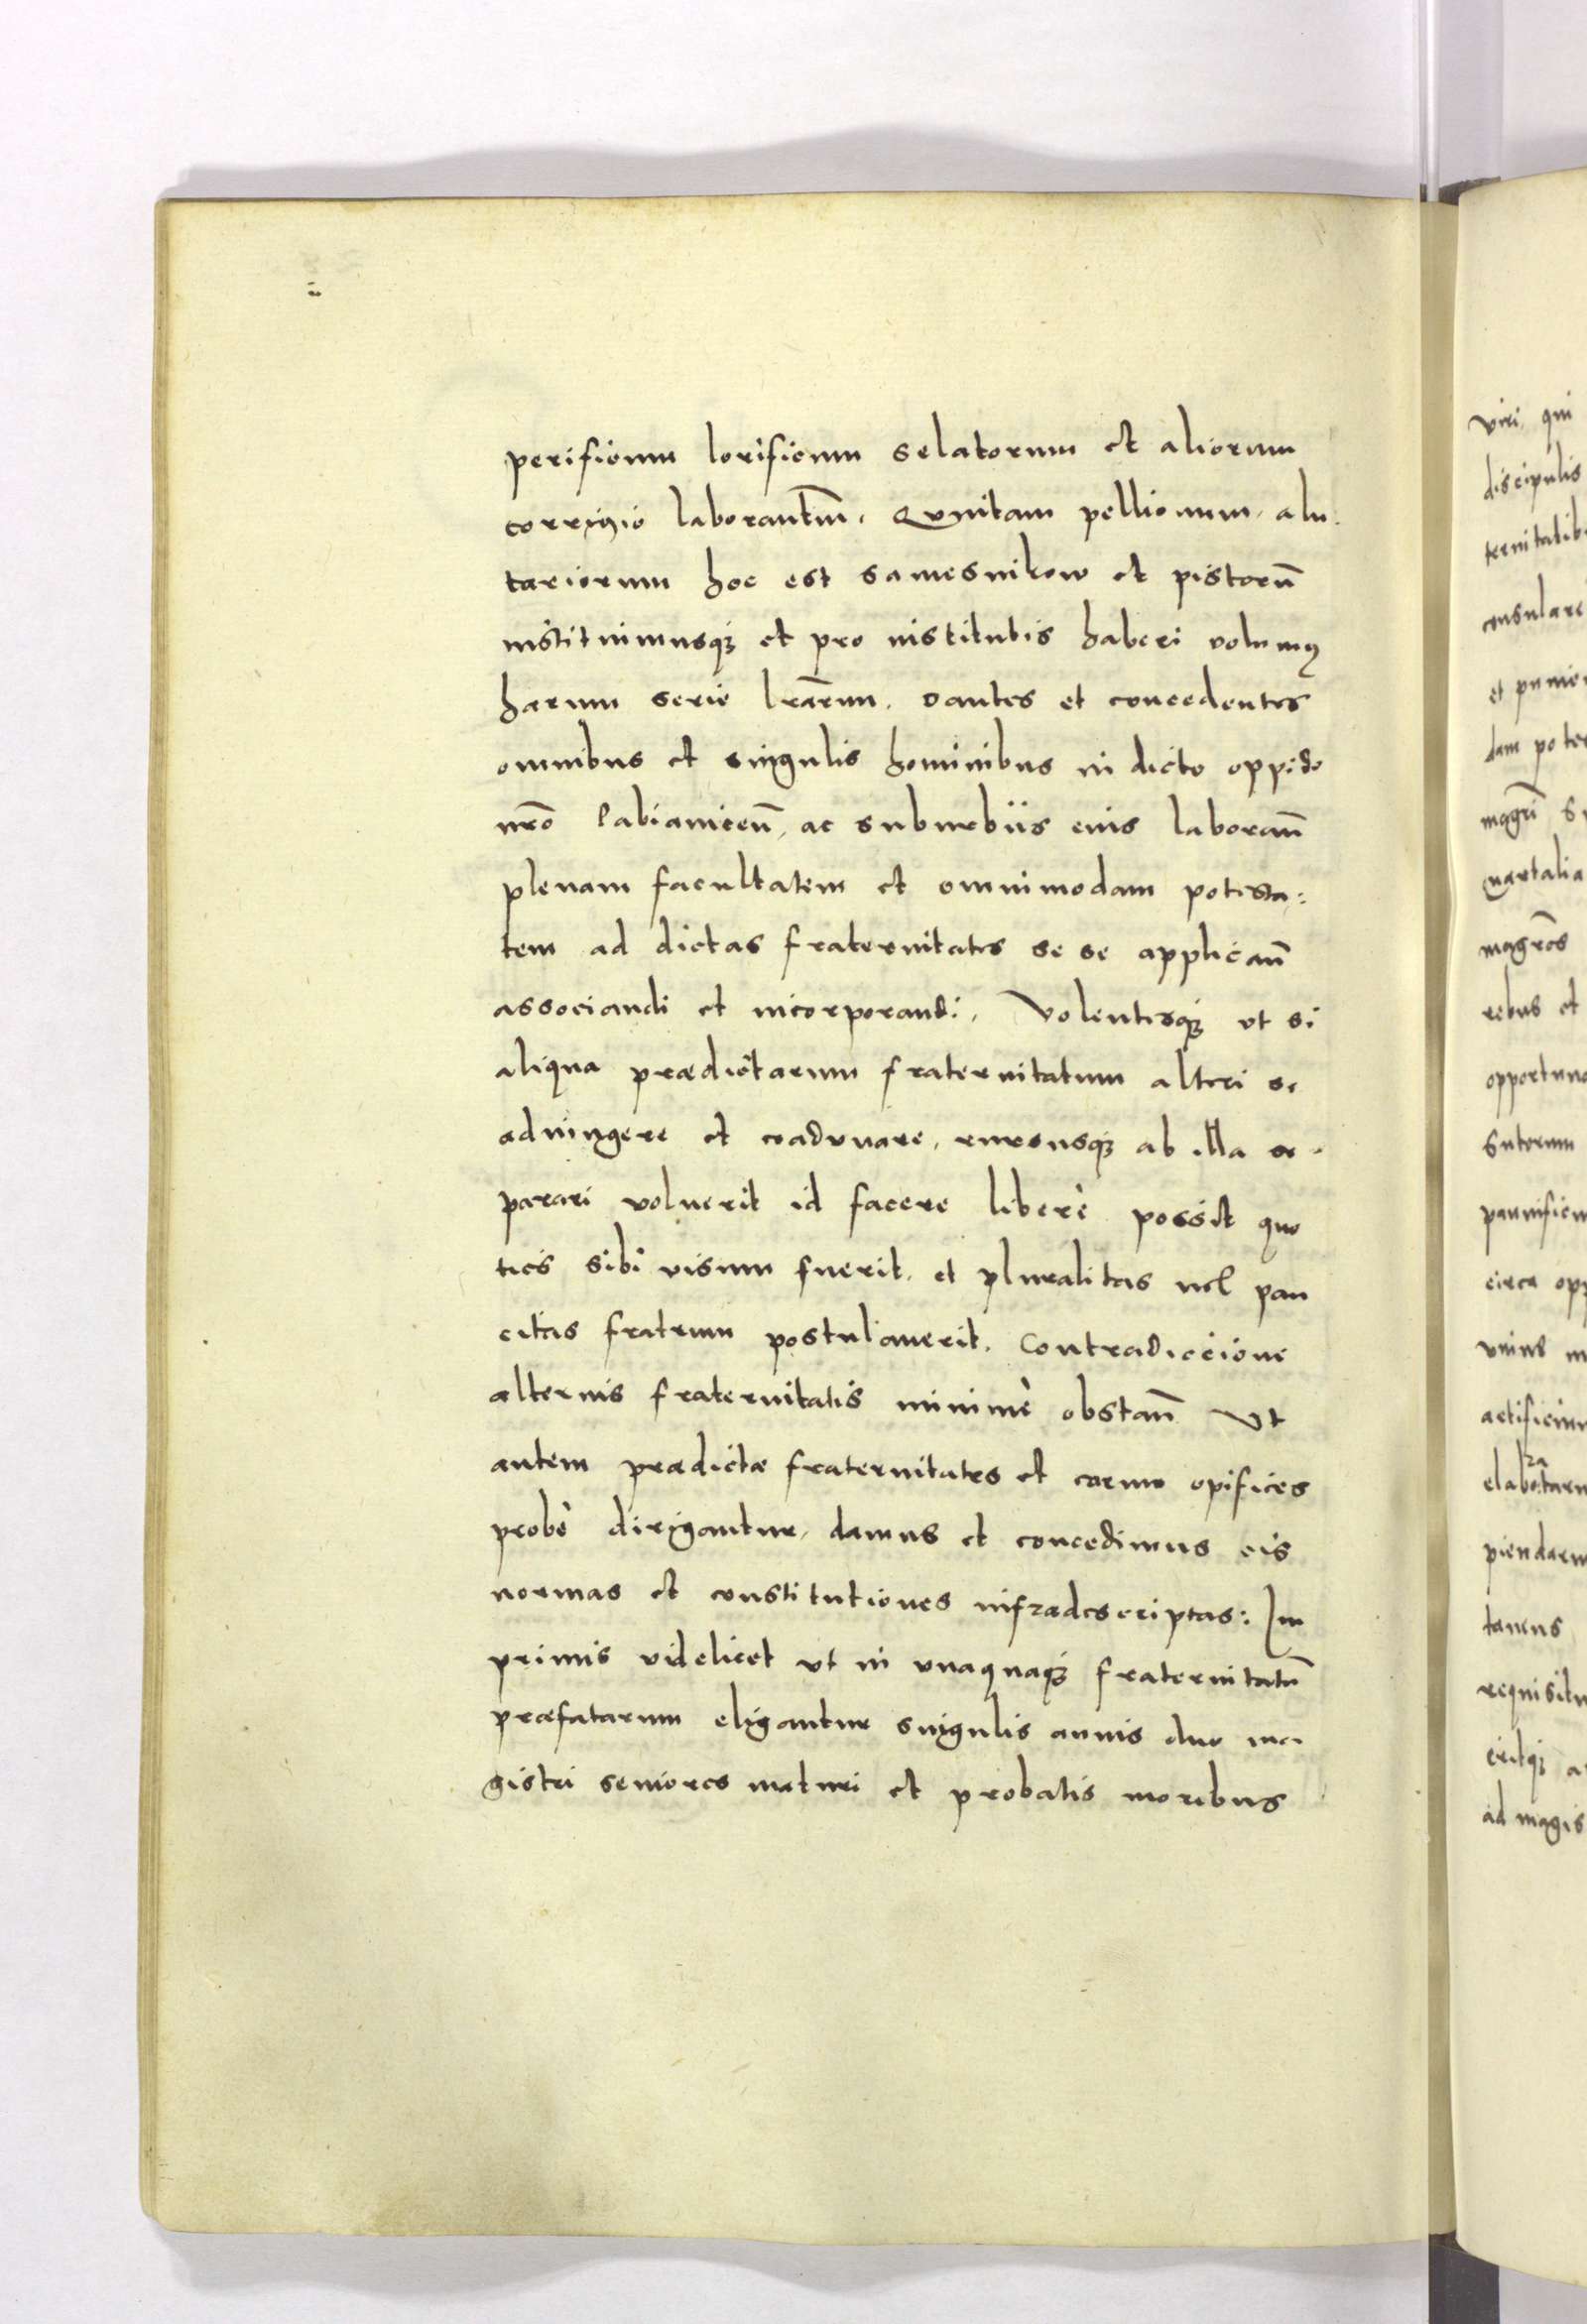 perificum lorificum selatorum et aliorum
corrigio laborantm̄. Qvintam pellionum, alu-
tariorum hoc est samesnikow et pistorū
instituimusq3 et pro institutis haberi volumꝰ
harum serie lr̄arum. Dantes et concedentes
omnibus et singulis hominibus in dicto oppido
nrō Pabianiceñ, ac suburbiis eius laborañ
plenam facultatem et omnimodam potesta:
tem ad dictas fraternitates se se applicañ
associandi et incorporandi. Volentesq3 ut si
aliqua prædictarum fraternitatum alteri se
adiungere et coadvnare, rursusq3 ab illa se-
parari voluerit id facere liberè possit quo
ties sibi visum fuerit. et pluralitas vel pau
citas fratrum postulaverit. Contradiccione
alternis fraternitatis minimè obstañ Vt
autem prædictæ fraternitates et earum opifices
probè dirigantur, damus et concedimus eis
normas et constitutiones infradescriptas: Im
primis videlicet vt in vnaquaq3 fraternitatū
præfatarum eligantur singulis annis duo ma-
gistri seniores maturi et probatis moribus
viri, qui
discipulis
ternitatib
consulare
et punien
dam potes
magrī s
quartalia
magrōs
rebus et
opportuna
Sutorum
pannificum
circa opp
vnius m
artificium
elaboratarum
piendarum
taneus
requisitu
eritq3 a
ad magis